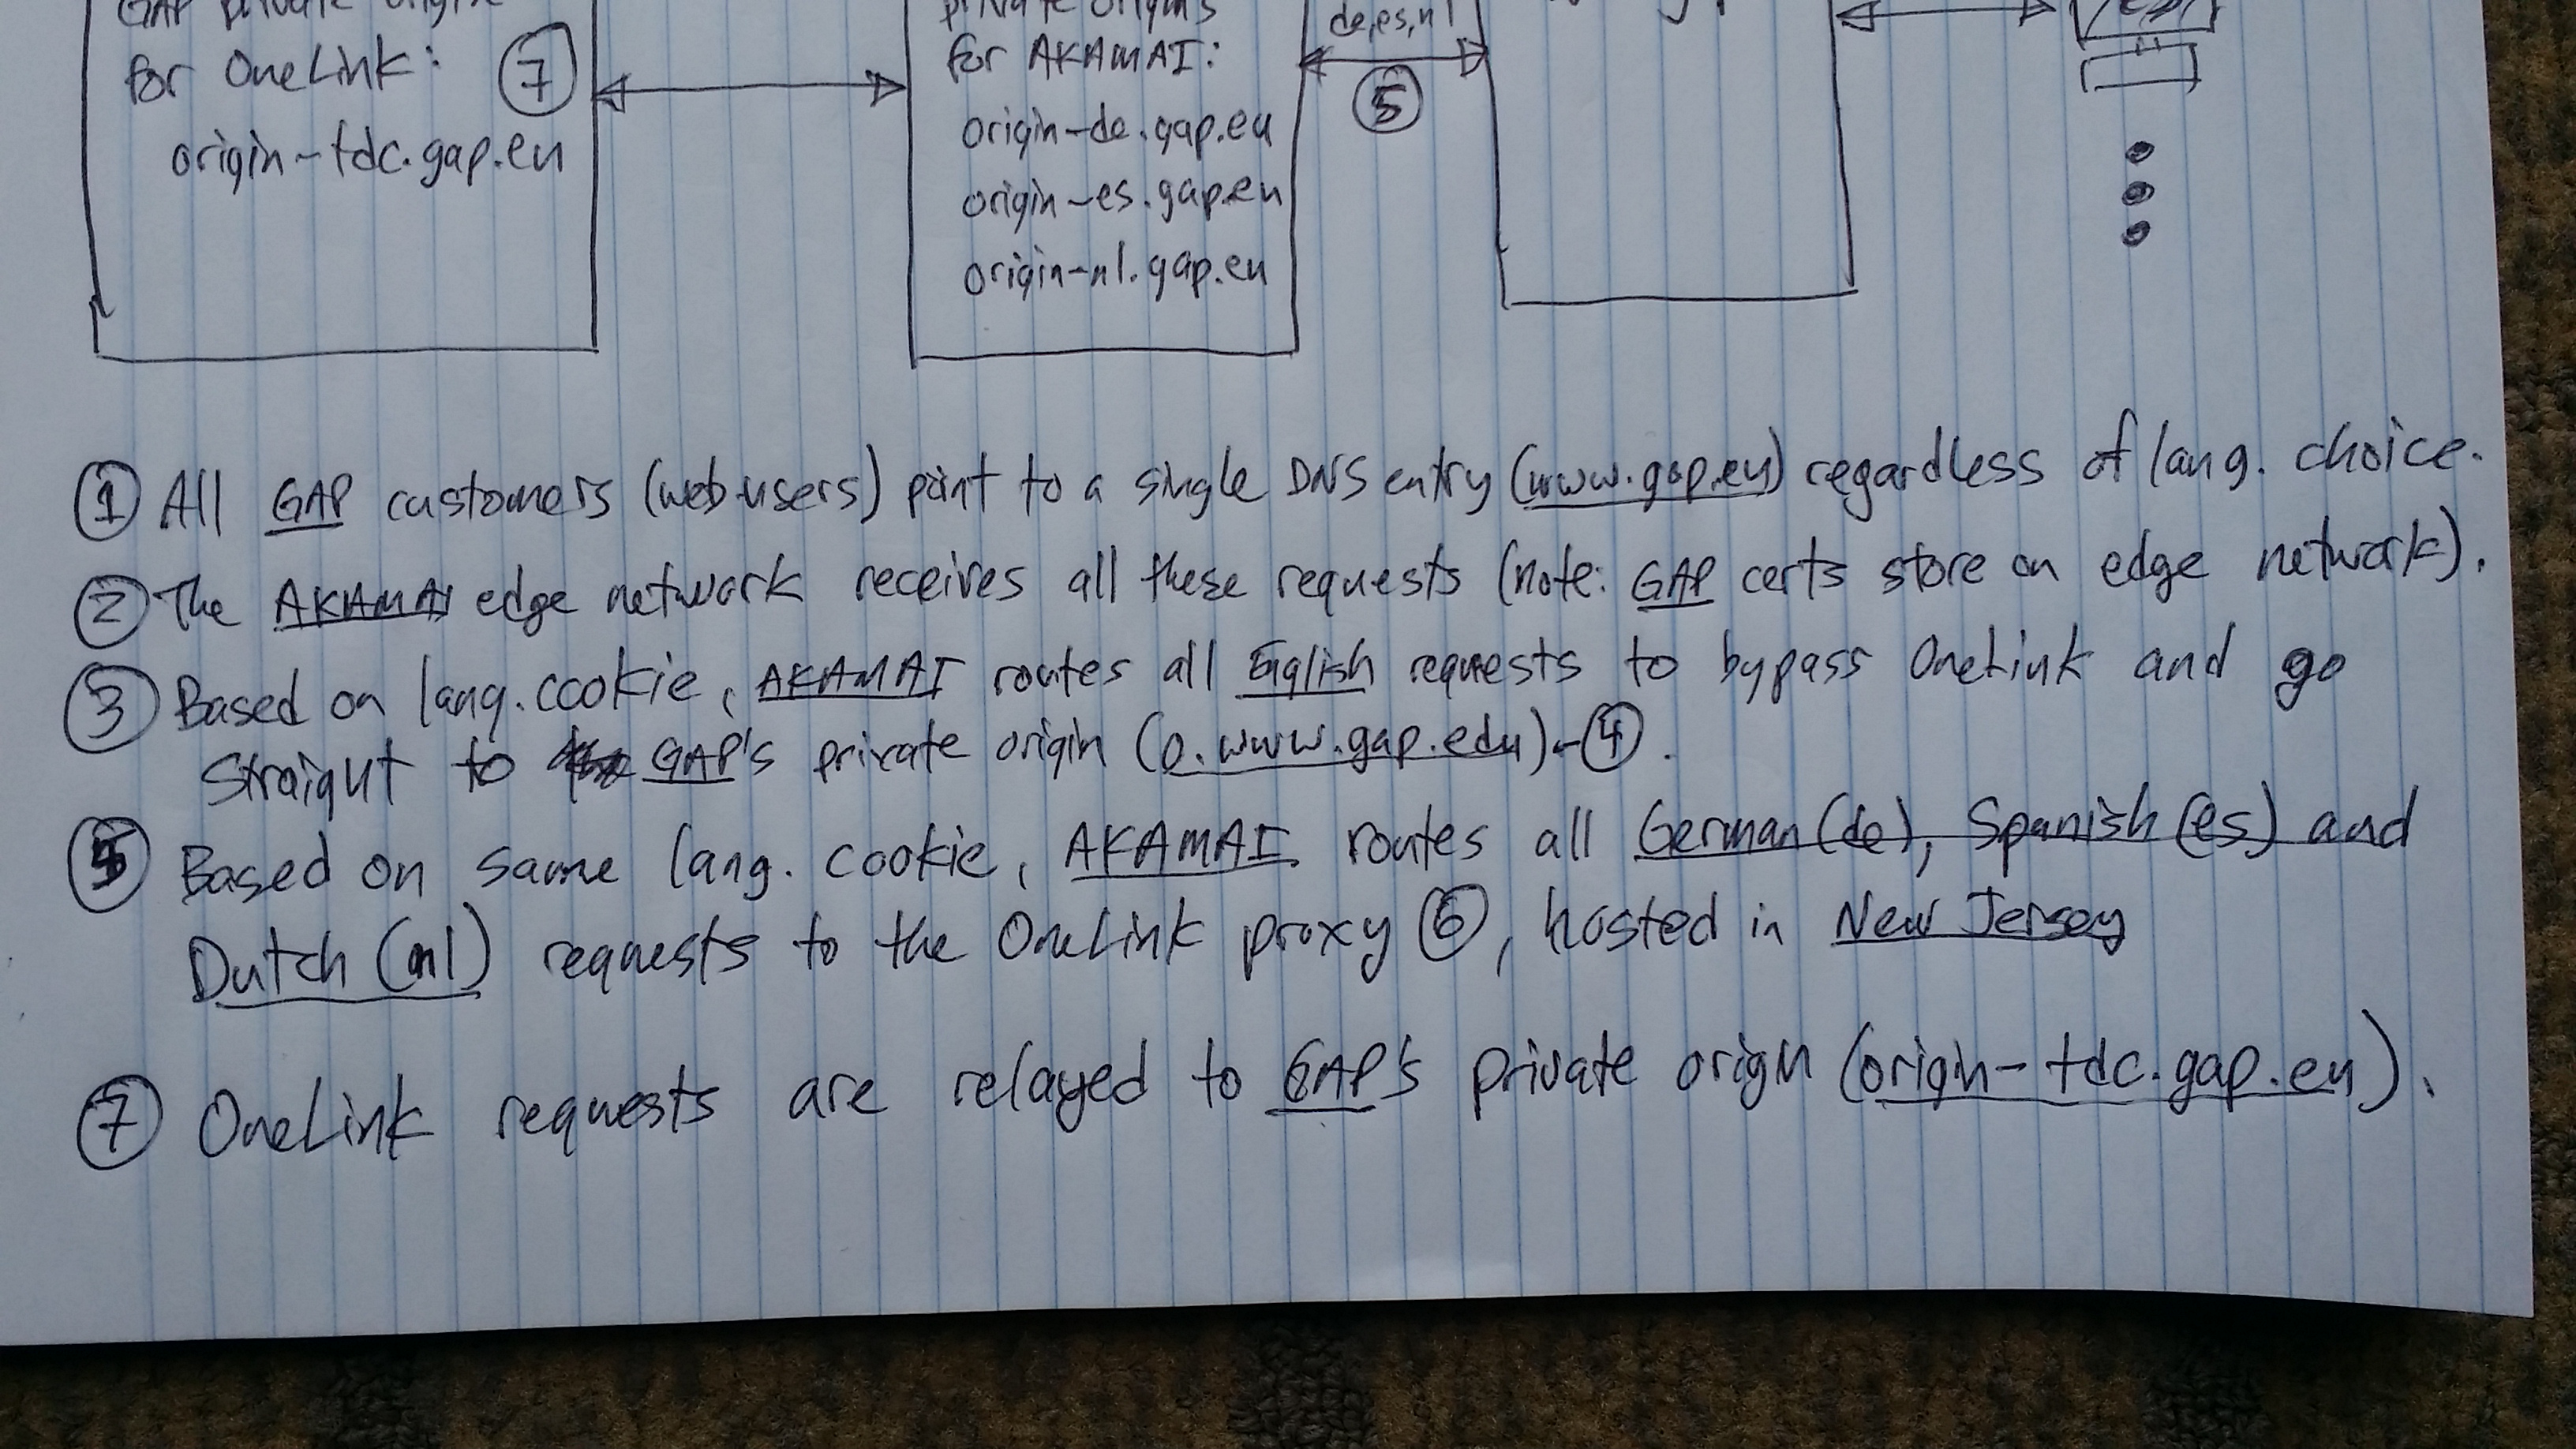 GAP private origin
for OneLink: 7
origin-tdc.gap.eu
private origins
for AKAMAI:
origin-de.gap.eu
origin-es.gap.eu
origin-nl.gap.eu
de,es,nl
5
1 All GAP customers (web users) point to a single DNS entry (www.gap.eu) regardless of lang. choice.
2 The AKAMAI edge network receives all these requests (note: GAP certs store on edge network).
3 Based on lang. cookie, AKAMAI routes all English requests to bypass OneLink and go
straigut to GAP's private origin (o.www.gap.edu)-4.
5 Based on same lang. cookie, AKAMAI routes all German (de), Spanish (es) and
Dutch (nl) requests to the OneLink proxy 6, hosted in New Jersey
7 OneLink requests are relayed to GAP's private origin (origin-tdc.gap.eu).